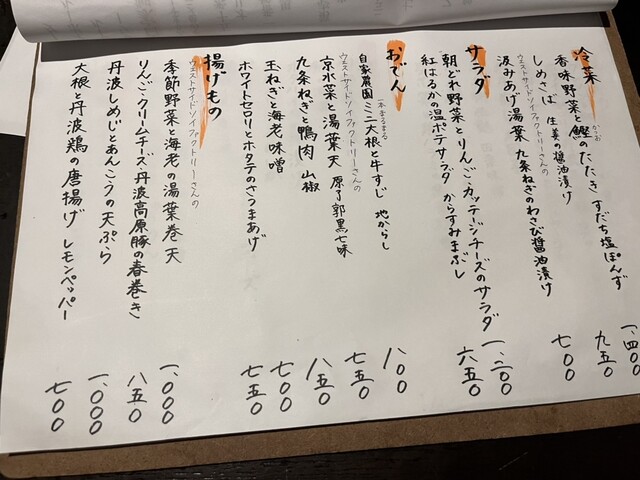 冷菜
香味野菜と鰹のたたき すだち塩ぽんず 一、四〇〇
かつお
しめさば 生姜の醤油漬け 九五〇
ウエストサイドソイファクトリーさんの
汲みあげ湯葉 九条ねぎのわさび醤油漬け 七〇〇
サラダ
朝どれ野菜とりんご、カッテージチーズのサラダ 一、二〇〇
紅はるかの温ポテサラダ からすみまぶし 六五〇
おでん
一本まるまる
自家農園ミニ大根と牛すじ 地がらし 八〇〇
ウエストサイドソイファクトリーさんの
京水菜と湯葉天 原了郭黒七味 七五〇
九条ねぎと鴨肉 山椒 八五〇
玉ねぎと海老味噌 七〇〇
ホワイトセロリとホタテのさつまあげ 七五〇
揚げもの
ウエストサイドソイファクトリーさんの
季節野菜と海老の湯葉巻天 一、〇〇〇
りんご・クリームチーズ・丹波高原豚の春巻き 八五〇
丹波しめじとあんこうの天ぷら 一、〇〇〇
大根と丹波鶏の唐揚げ レモンペッパー 七〇〇